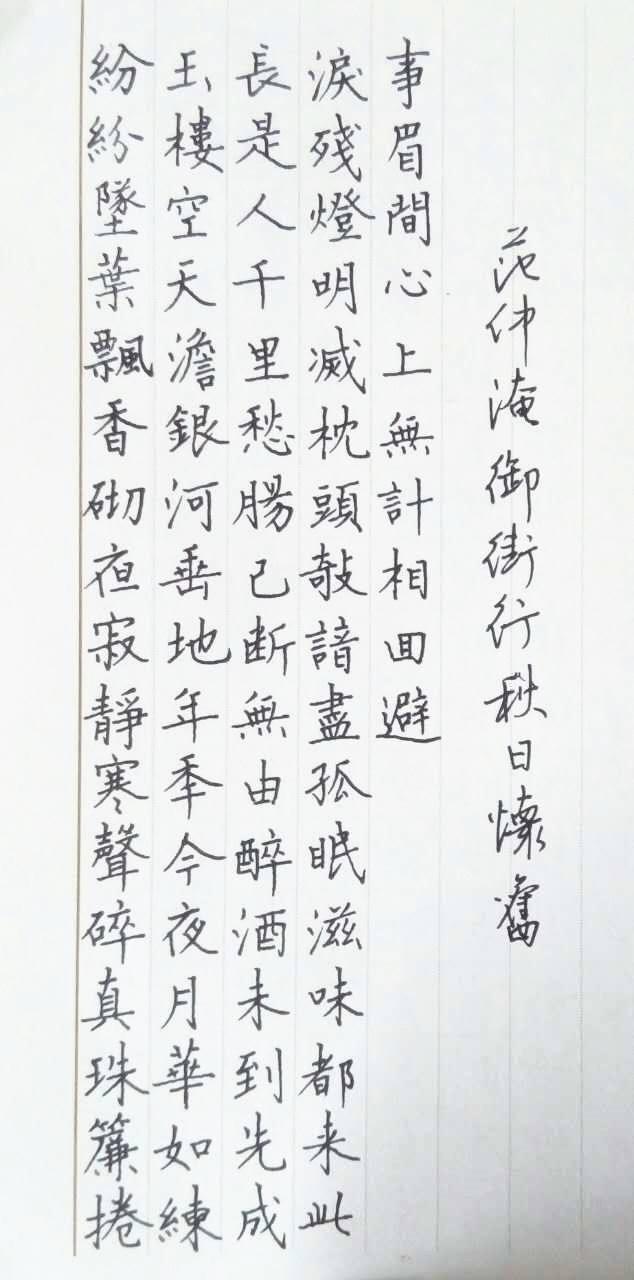 紛紛墜葉飄香砌亱寂靜寒聲碎真珠簾捲
玉樓空天澹銀河垂地年秊今夜月華如練
長是人千里愁腸已断無由醉酒未到先成
淚殘燈明滅枕頭攲諳盡孤眠滋味都来此
事眉間心上無計相囬避
范仲淹御街行秋日懷舊